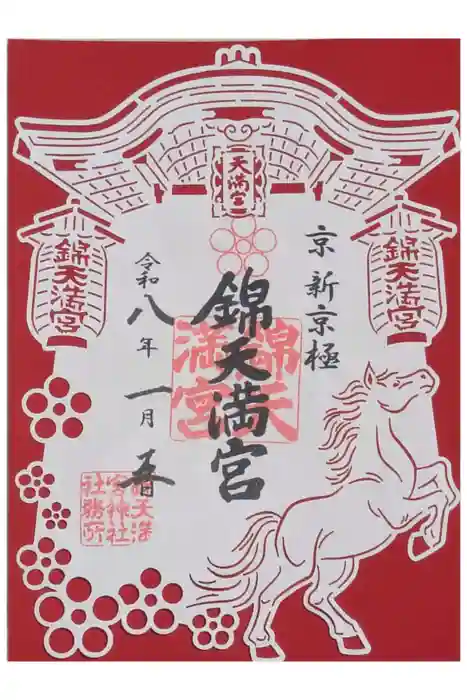 天満宮
錦天満宮
錦天満宮
京 新京極
錦天満宮
令和八年 一月
錦天
満宮
錦天満
宮神社
社務所